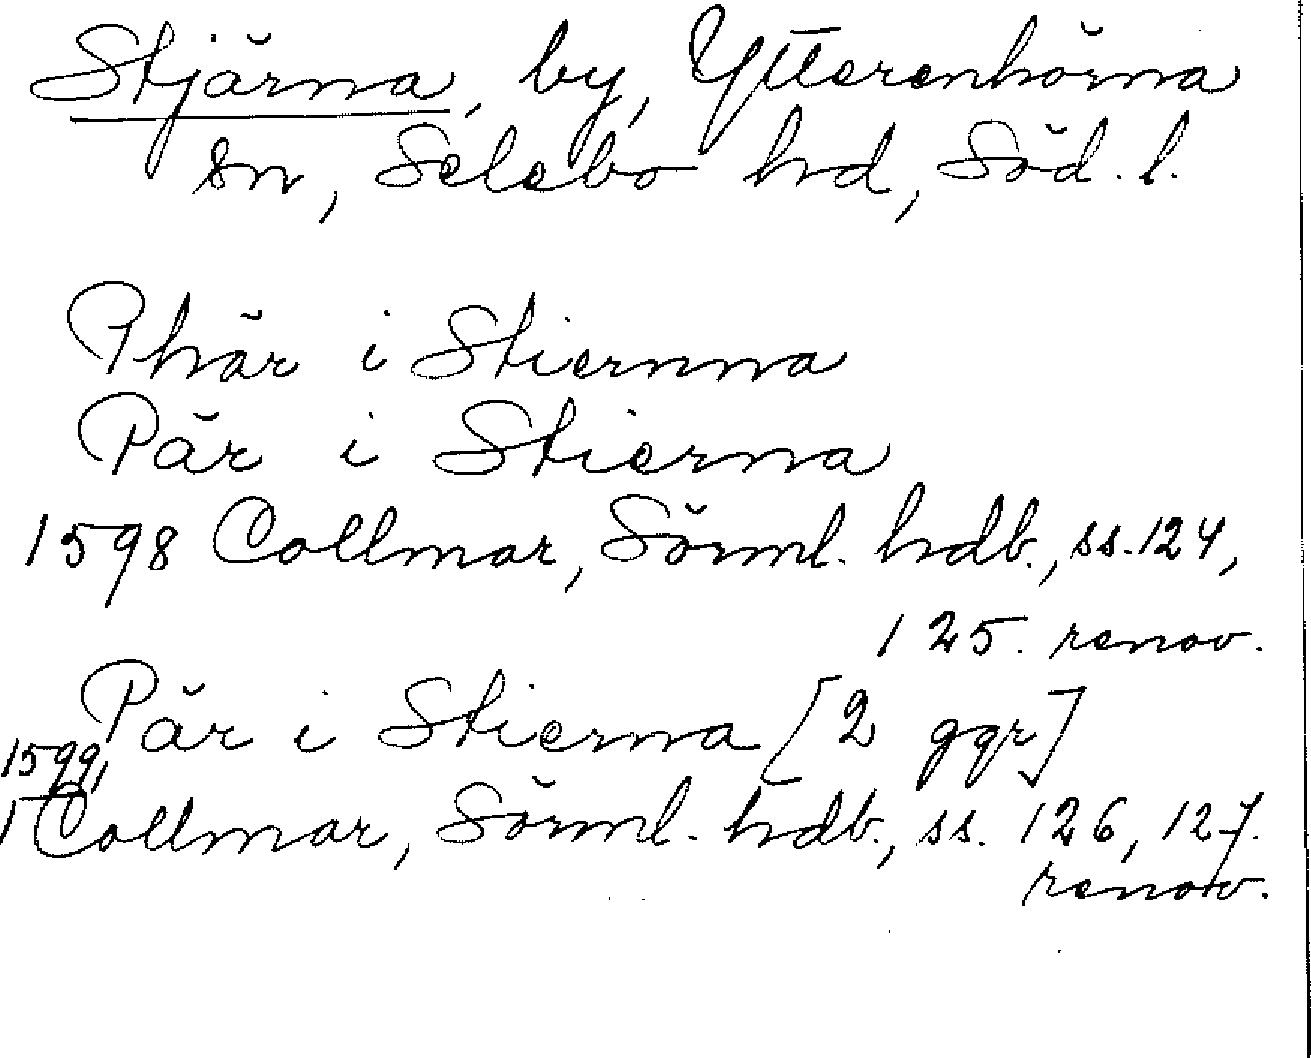 Stjärna, by, Ytterenhörna
sn, Selebo hd, Söd. l.
Phär i Stiernna
Pär i Stierna
1598 Collmar, Sörml. hdb., ss. 124,
125. renov.
Pär i Stierna [2 ggr]
1599,
Collmar, Sörml. hdb., ss. 126, 127.
renov.